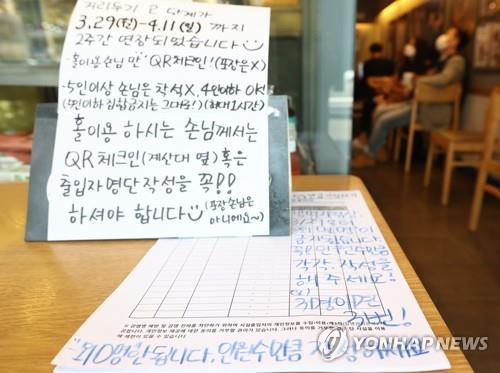 거리두기 2 단계가
3.29(월)-4.11(일) 까지
2주간 연장되었습니다
-홀이용손님만 "QR체크인"(포장은X)
-5인이상 손님은 착석X, 4인이하 OK!
(5인이하 집합금지는 그대로!) (최대1시간)
홀이용 하시는 손님께서는
QR체크인(계산대 옆)혹은
출입자명단작성을 꼭!!
하셔야 합니다 (포장손님은
아니에요~)
3월29일부터
"외 몇명"이
금지됩니다
꼭! 인원수만큼
각각, 작성을
해주세요!
3명이면
3번!
"외0명안됩니다. 인원수만큼
YONHAP NEWS
YONHAPNEWS